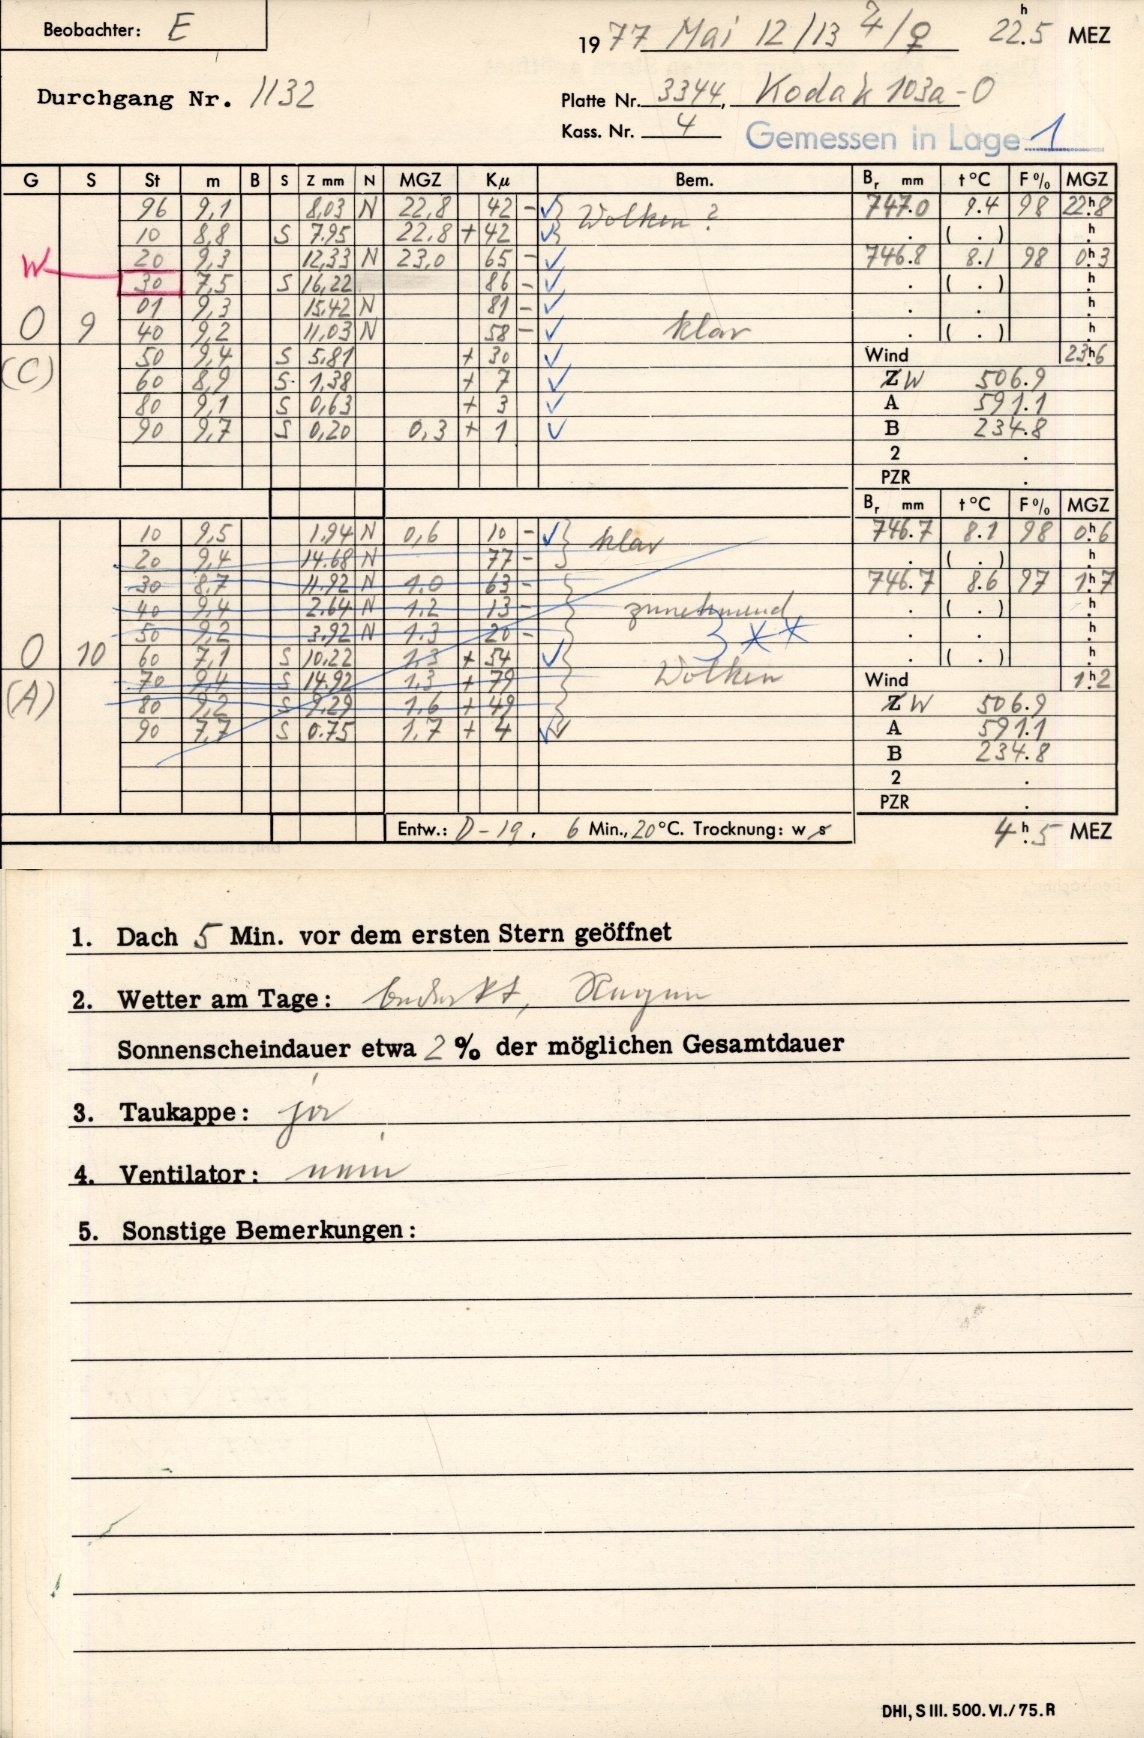 Beobachter: E
1977 Mai 12/13 ♃/♀ 22h.5 MEZ
Durchgang Nr. 1132
Platte Nr. 3344, Kodak 103a-O
Kass. Nr. 4 Gemessen in Lage 1
G S St m B S Z mm N MGZ Kμ Bem. Br mm t°C F% MGZ
96 9,1 8,03 N 22,8 42 - ✓ } Wolken ? 747.0 9.4 98 22h.8
10 8,8 S 7.95 22.8 + 42 ✓ . ( . ) h.
W 20 9,3 12,33 N 23,0 65 - ✓ 746.8 8.1 98 0h.3
30 7,5 S 16,22 86 - ✓ . ( . ) h.
01 9,3 15,42 N 81 - ✓ . . h.
O 9 40 9,2 11,03 N 58 - ✓ klar . ( . ) h.
(C) 50 9,4 S 5,81 + 30 ✓ Wind 23h.6
60 8,9 S 1,38 + 7 ✓ Z W 506.9
80 9,1 S 0,63 + 3 ✓ A 591.1
90 9,7 S 0,20 0,3 + 1 ✓ B 234.8
2 .
PZR .
Br mm t°C F% MGZ
10 9,5 1,94 N 0,6 10 - ✓ } klar 746.7 8.1 98 0h.6
20 9,4 14.68 N 77 - . ( . ) h.
30 8,7 11.92 N 1.0 63 - 746.7 8.6 97 1h.7
40 9,4 2.64 N 1.2 13 - } zunehmend . ( . ) h.
50 9,2 3.92 N 1.3 20 - 3 ** . . h.
O 10 60 7,1 S 10,22 1.3 + 54 ✓ . ( . ) h.
(A) 70 9,4 S 14.92 1,3 + 79 } Wolken Wind 1h.2
80 9,2 S 9.29 1,6 + 49 Z W 506.9
90 7,7 S 0.75 1,7 + 4 ✓✓ A 591.1
B 234.8
2 .
PZR .
Entw.: D-19. 6 Min., 20°C. Trocknung: w s 4h.5 MEZ
1. Dach 5 Min. vor dem ersten Stern geöffnet
2. Wetter am Tage: bedeckt, Regen
Sonnenscheindauer etwa 2 % der möglichen Gesamtdauer
3. Taukappe: ja
4. Ventilator: nein
5. Sonstige Bemerkungen:
DHI, S III. 500. VI./75. R